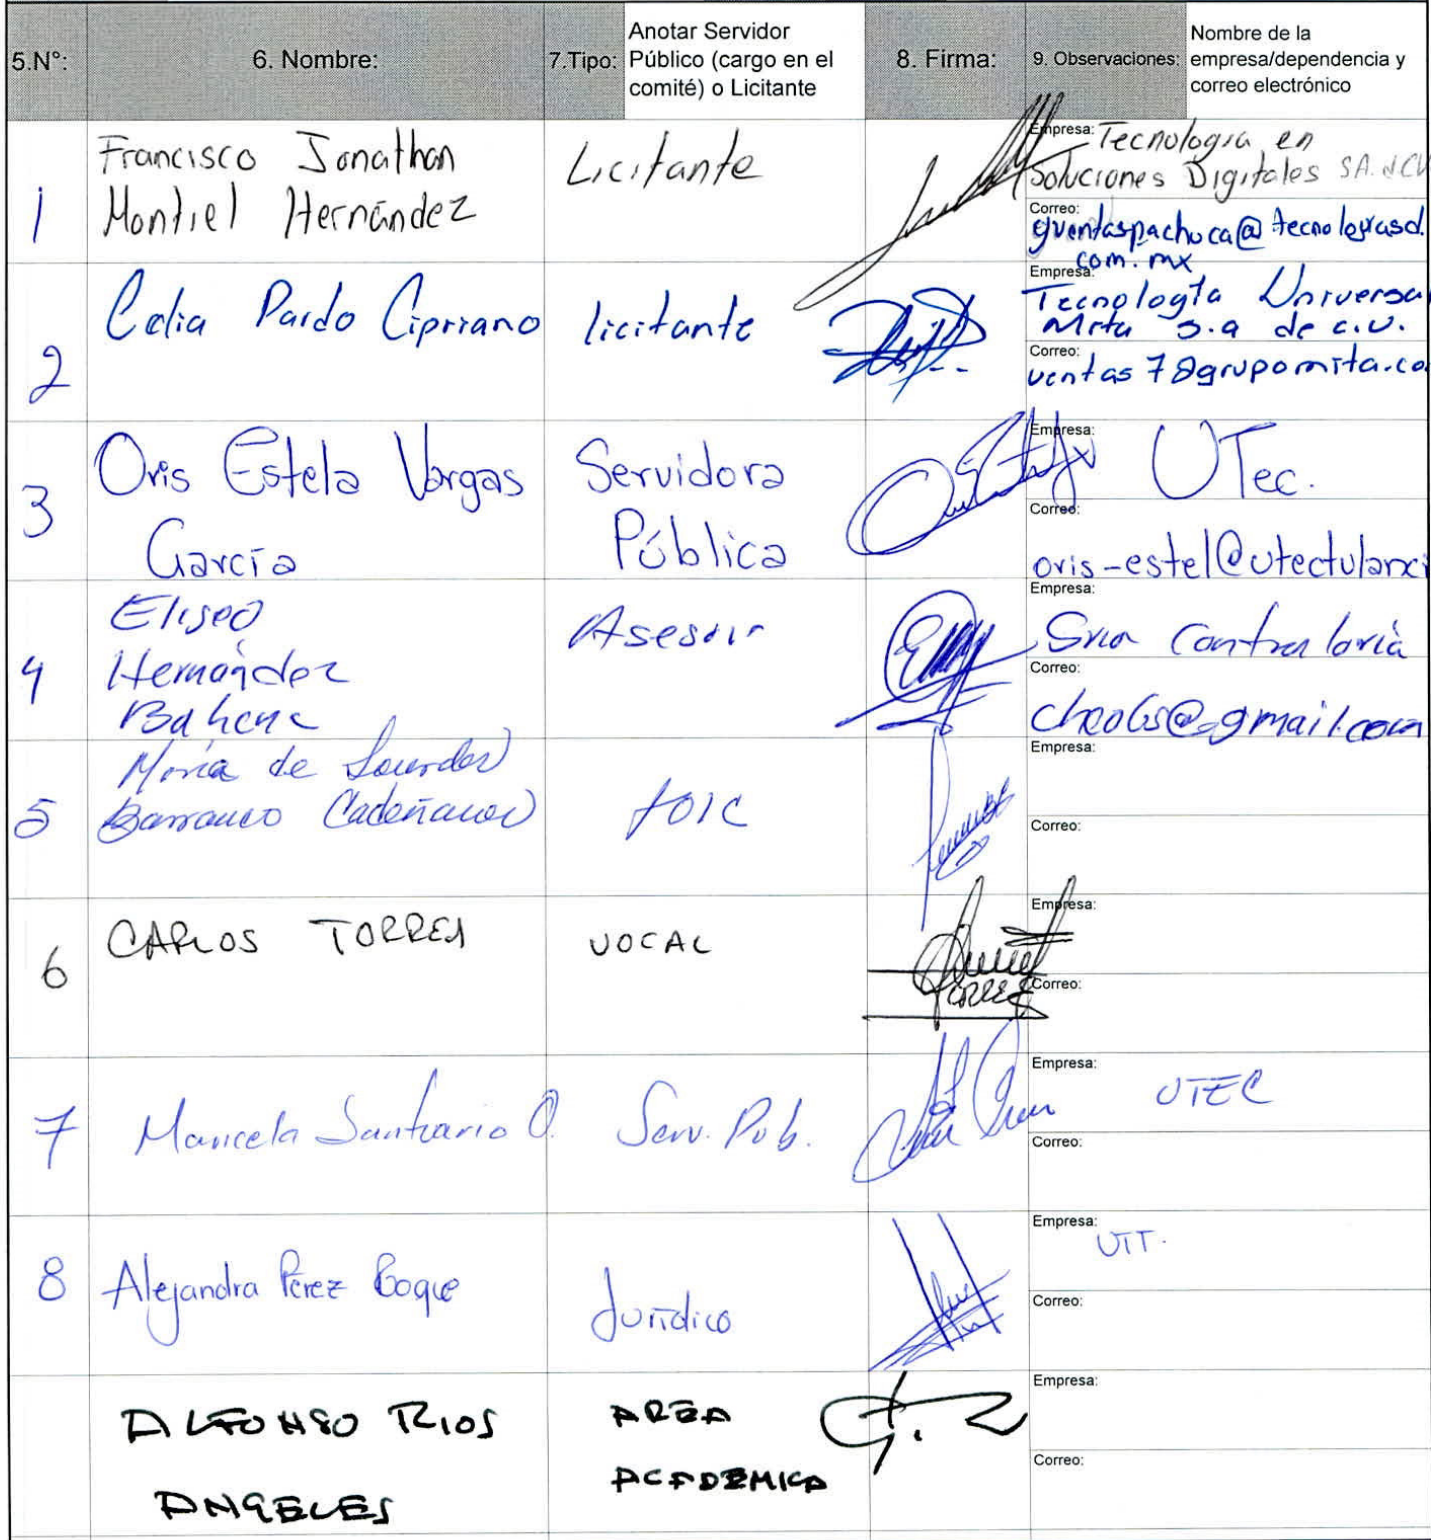 5.N°:
6. Nombre:
7.Tipo:
Anotar Servidor
Público (cargo en el
comité) o Licitante
8. Firma:
9. Observaciones:
Nombre de la
empresa/dependencia y
correo electrónico
1
Francisco Jonathan
Montiel Hernández
Licitante
Empresa: Tecnología en
Soluciones Digitales SA. d CV
Correo:
gventaspachuca@tecnologiasd.
com.mx
2
Celia Pardo Cipriano
licitante
Empresa:
Tecnología Universal
Mita s.a de c.v.
Correo:
ventas7@grupomita.co
3
Oris Estela Vargas
García
Servidora
Pública
Empresa:
UTec.
Correo:
oris-estel@utectulanci
4
Eliseo
Hernández
Bahena
Asesor
Empresa:
Sria Contraloría
Correo:
@gmail.com
5
María de Lourdes
Barranco
Empresa:
Correo:
6
CARLOS TORRES
VOCAL
Empresa:
TORRES
Correo:
7
Maricela Santuario O.
Serv. Pub.
Empresa:
UTEC
Correo:
8
Alejandra Pérez Roque
Jurídico
Empresa:
UTT.
Correo:
ALFONSO RIOS
ANGELES
AREA
ACADEMICA
Empresa:
Correo: